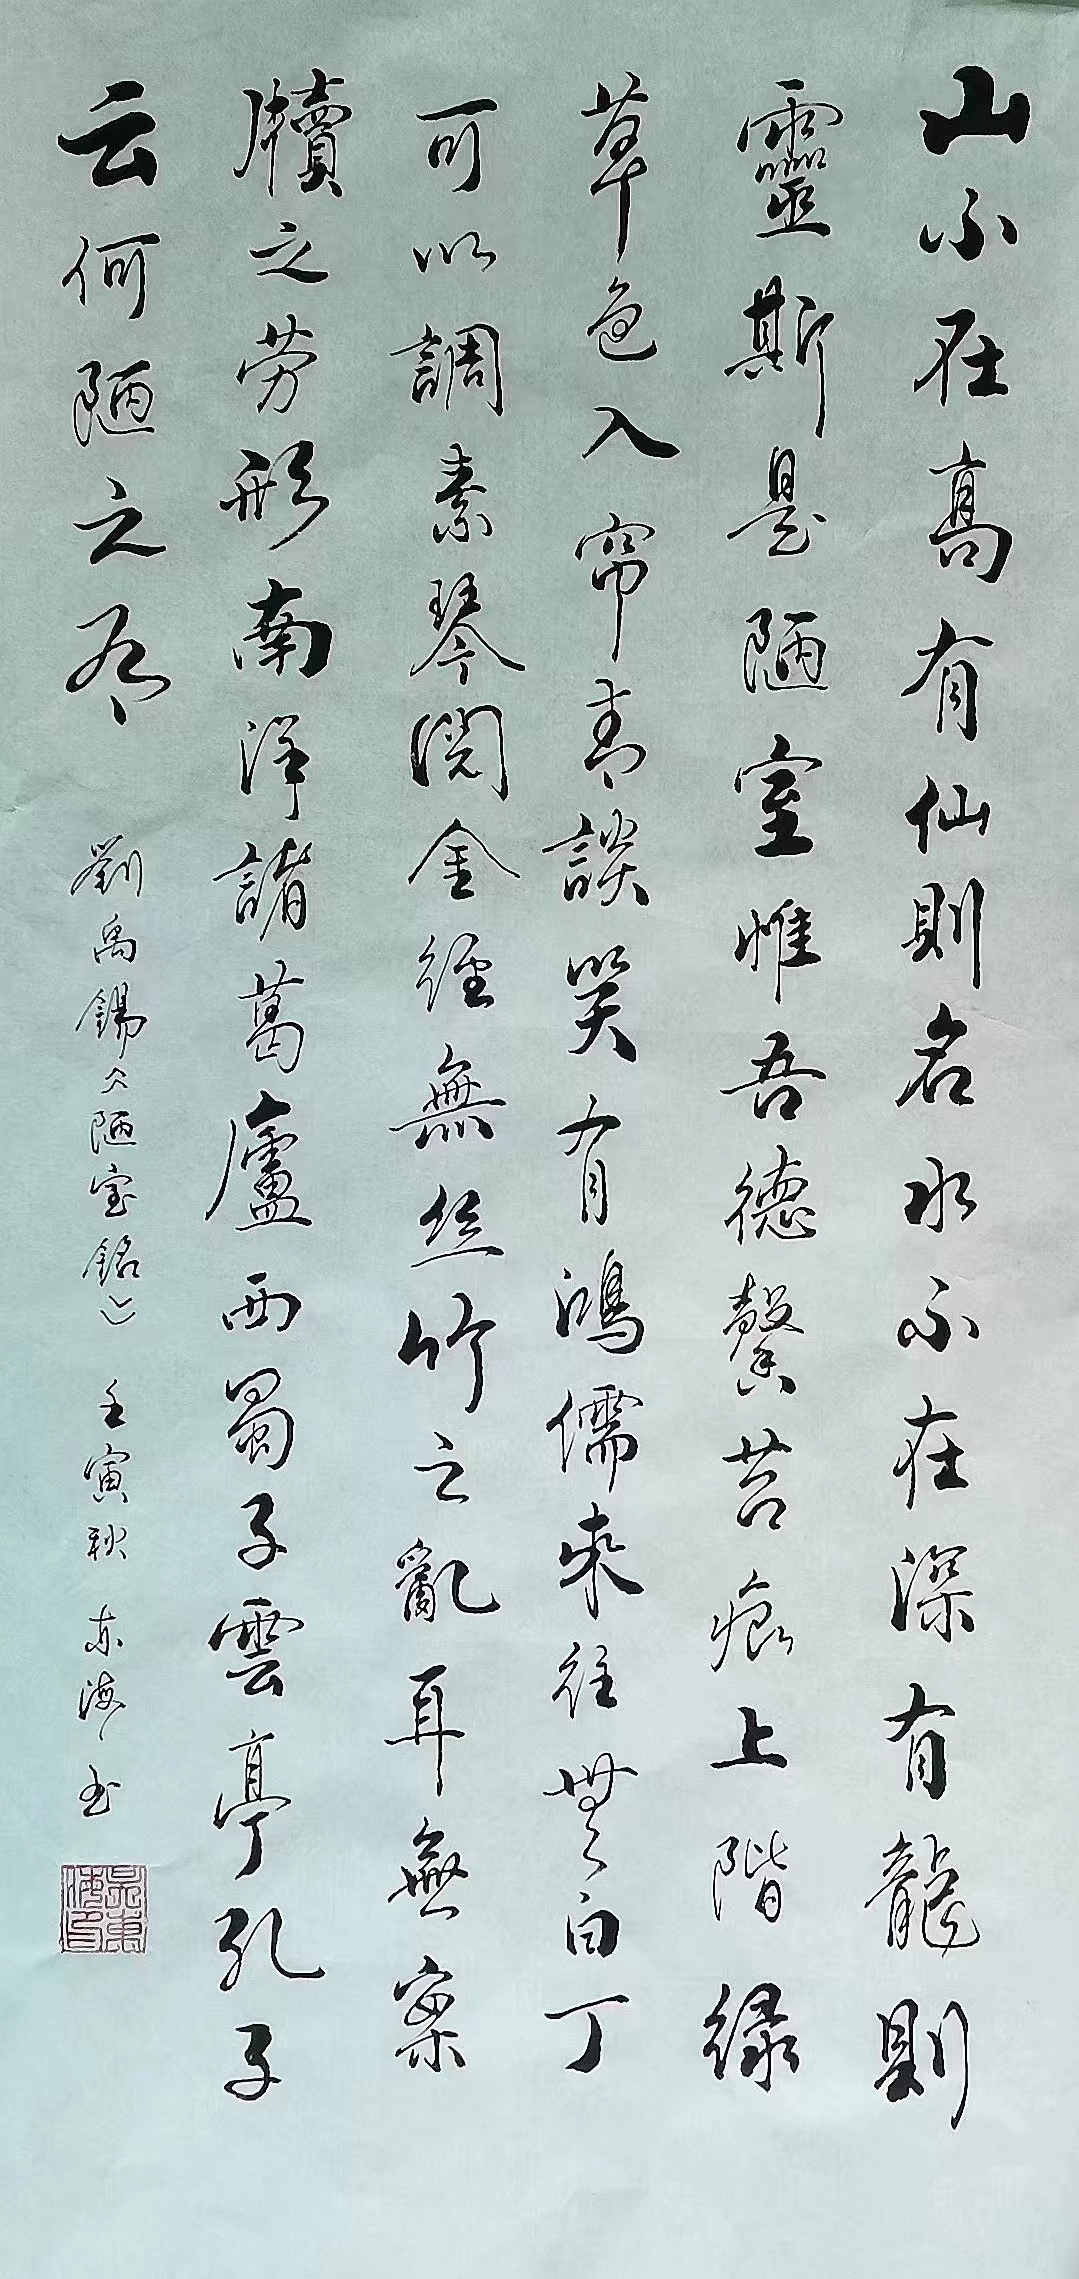 山不在高有仙則名水不在深有龍則
靈斯是陋室惟吾德馨苔痕上階緑
草色入帘青談笑有鴻儒来往無白丁
可以調素琴閱金經無丝竹之亂耳無案
牘之劳形南洋諸葛廬西蜀子雲亭孔子
云何陋之有
劉禹錫《陋室銘》 壬寅秋 东海书
吴東海印